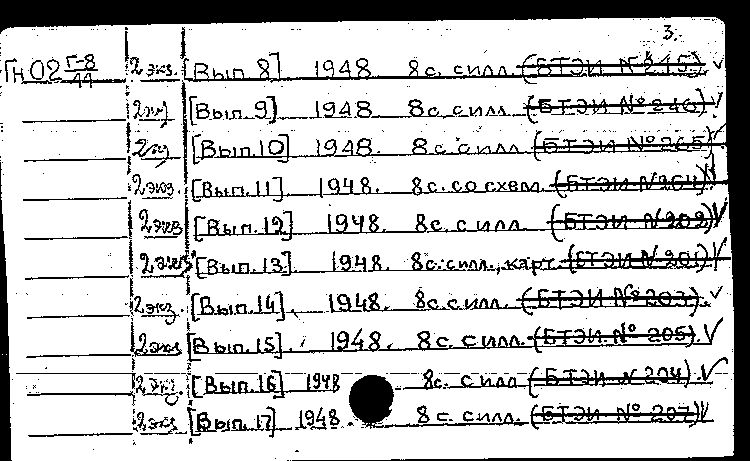 3.
Гн 02 Г-8/44 2 экз. [Вып. 8] 1948 8 с. с илл. (БТЭИ № 215)
2 экз [Вып. 9] 1948 8 с. с илл. (БТЭИ № 240)
2 экз [Вып. 10] 1948. 8 с. с илл. (БТЭИ № 265)
2 экз. [Вып. 11] 1948. 8 с. со схем. (БТЭИ № 264)
2 экз [Вып. 12] 1948. 8 с. с илл. (БТЭИ № 202)
2 экз [Вып. 13] 1948. 8 с. с илл., карт. (БТЭИ № 201)
2 экз. [Вып. 14] 1948. 8 с. с илл. (БТЭИ № 203).
2 экз [Вып. 15] 1948. 8 с. с илл. (БТЭИ. № 205).
2 экз. [Вып. 16] 1948 8 с. с илл (БТЭИ № 204).
2 экз [Вып. 17] 1948. 8 с. с илл. (БТЭИ № 207)